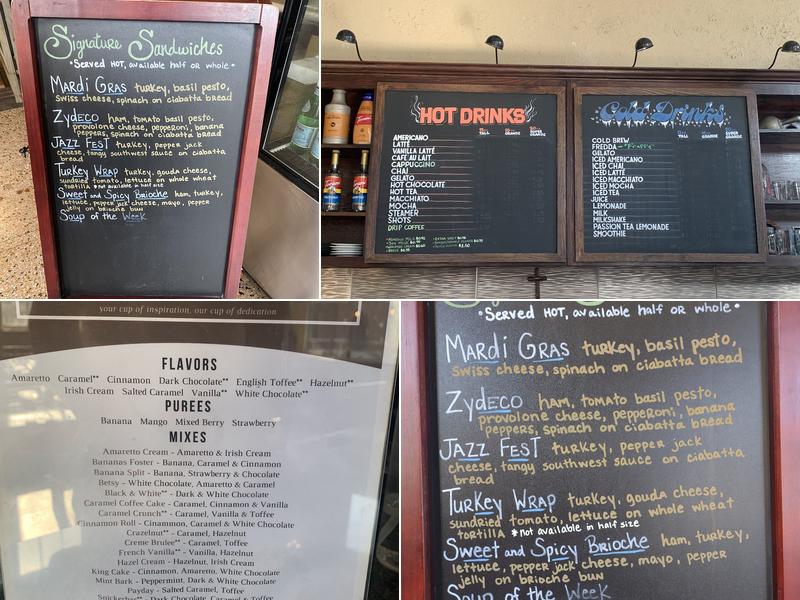 Signature Sandwiches
• Served HOT, available half or whole •
Mardi Gras turkey, basil pesto,
Swiss cheese, spinach on ciabatta bread
Zydeco ham, tomato basil pesto,
provolone cheese, pepperoni, banana
peppers, spinach on ciabatta bread
Jazz Fest turkey, pepper jack
cheese, tangy southwest sauce on ciabatta
bread
Turkey Wrap turkey, gouda cheese,
sundried tomato, lettuce on whole wheat
tortilla *not available in half size
Sweet and Spicy Brioche ham, turkey,
lettuce, pepper jack cheese, mayo, pepper
jelly on brioche bun
Soup of the Week
HOT DRINKS
TALL GRANDE SUPER GRANDE
AMERICANO
LATTE
VANILLA LATTE
CAFE AU LAIT
CAPPUCCINO
CHAI
GELATO
HOT CHOCOLATE
HOT TEA
MACCHIATO
MOCHA
STEAMER
SHOTS
DRIP COFFEE
Cold Drinks
TALL GRANDE SUPER GRANDE
COLD BREW
FREDDA - "Frappe"
GELATO
ICED AMERICANO
ICED CHAI
ICED LATTE
ICED MACCHIATO
ICED MOCHA
ICED TEA
JUICE
LEMONADE
MILK
MILKSHAKE
PASSION TEA LEMONADE
SMOOTHIE
your cup of inspiration, our cup of dedication
FLAVORS
Amaretto Caramel** Cinnamon Dark Chocolate** English Toffee** Hazelnut**
Irish Cream Salted Caramel Vanilla** White Chocolate**
PUREES
Banana Mango Mixed Berry Strawberry
MIXES
Amaretto Cream - Amaretto & Irish Cream
Bananas Foster - Banana, Caramel & Cinnamon
Banana Split - Banana, Strawberry & Chocolate
Betsy - White Chocolate, Amaretto & Caramel
Black & White** - Dark & White Chocolate
Caramel Coffee Cake - Caramel, Cinnamon & Vanilla
Caramel Crunch** - Caramel, Vanilla & Toffee
Cinnamon Roll - Cinammon, Caramel & White Chocolate
Crazelnut** - Caramel, Hazelnut
Creme Brulee** - Caramel, Toffee
French Vanilla** - Vanilla, Hazelnut
Hazel Cream - Hazelnut, Irish Cream
King Cake - Cinnamon, Amaretto, White Chocolate
Mint Bark - Peppermint, Dark & White Chocolate
Payday - Salted Caramel, Toffee
Snickerbar** - Dark Chocolate, Caramel & Toffee
Signature Sandwiches
• Served HOT, available half or whole •
Mardi Gras turkey, basil pesto,
Swiss cheese, spinach on ciabatta bread
Zydeco ham, tomato basil pesto,
provolone cheese, pepperoni, banana
peppers, spinach on ciabatta bread
Jazz Fest turkey, pepper jack
cheese, tangy southwest sauce on ciabatta
bread
Turkey Wrap turkey, gouda cheese,
sundried tomato, lettuce on whole wheat
tortilla *not available in half size
Sweet and Spicy Brioche ham, turkey,
lettuce, pepper jack cheese, mayo, pepper
jelly on brioche bun
Soup of the Week